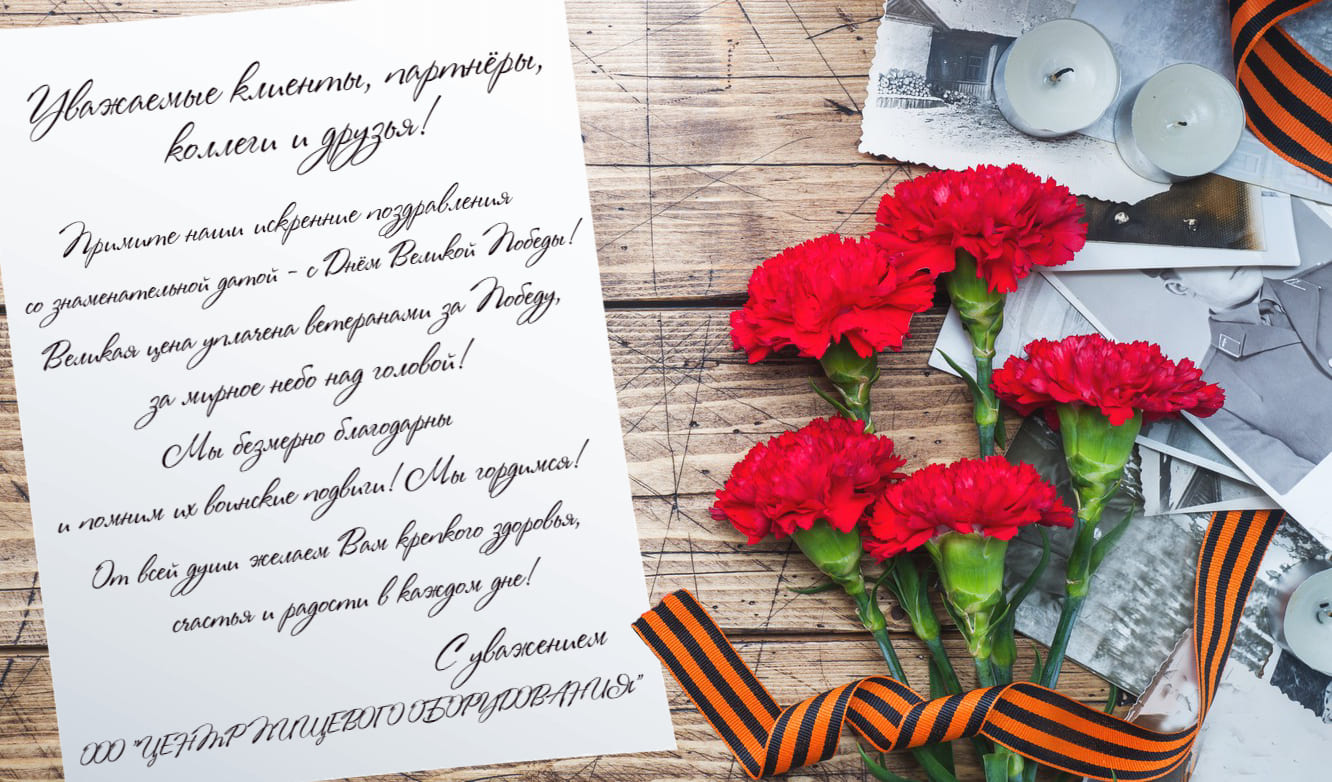 Уважаемые клиенты, партнёры,
коллеги и друзья!
Примите наши искренние поздравления
со знаменательной датой - с Днём Великой Победы!
Великая цена уплачена ветеранами за Победу,
за мирное небо над головой!
Мы безмерно благодарны
и помним их воинские подвиги! Мы гордимся!
От всей души желаем Вам крепкого здоровья,
счастья и радости в каждом дне!
С уважением
ООО "ЦЕНТР ПИЩЕВОГО ОБОРУДОВАНИЯ"